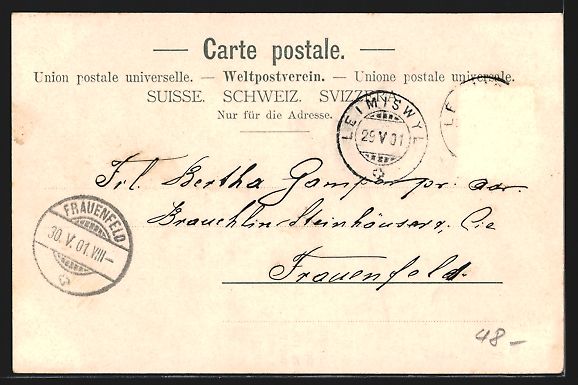 — Carte postale. —
Union postale universelle. — Weltpostverein. — Unione postale universale.
SUISSE. SCHWEIZ. SVIZZERA.
Nur für die Adresse.
LEIMISWYL
29 V 01
LE
Frl. Bertha Gomper pr. adr.
Brauchlin-Steinhäuser, Cie
Frauenfeld.
FRAUENFELD
30. V. 01. VIII–
48 –